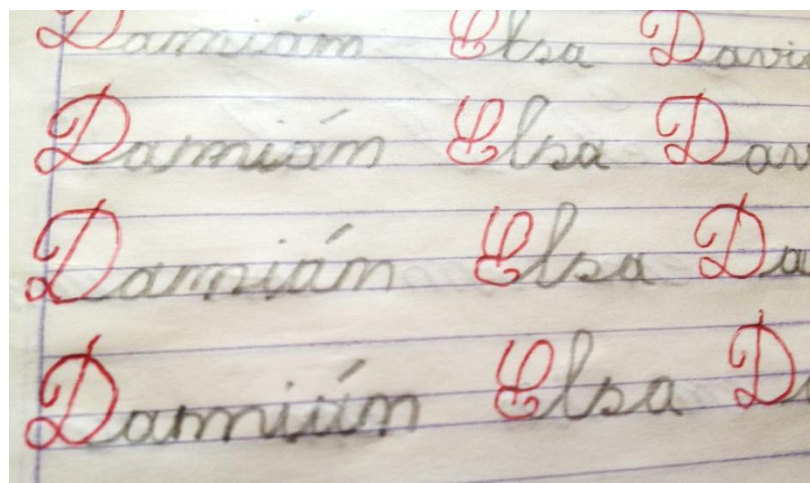 Damián Elsa Davi
Damián Elsa Dav
Damián Elsa Da
Damián Elsa D